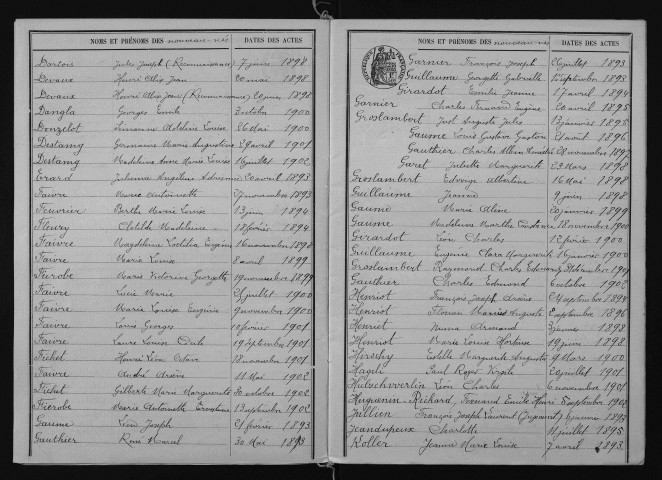 NOMS ET PRÉNOMS DES nouveau-nés DATES DES ACTES
Dartois Jules Joseph (Reconnaissance) 7 juin 1898
Devaux Henri Jean 20 mai 1898
Devaux Henri Jean (Reconnaissance) 20 1898
Dangla Georges Emile 3 octobre 1900
Donzelot Simonne Adeline Louise 26 Mai 1900
Destamg Germaine Marie Augustine 29 avril 1901
Destamg Madeleine Anne Marie Louise 16 juillet 1902
Erard Julienne Angeline 20 avril 1893
Faivre Marie Antoinette 27 novembre 1893
Feuvrier Berthe Marie Louise 13 juin 1894
Fleury Clotilde Madeleine 17 février 1894
Faivre Magdeleine Eugénie 16 novembre 1898
Faivre Marie Louise 8 avril 1899
Fierobe Marie Victorine Georgette 19 novembre 1899
Faivre Lucie Marie 21 juillet 1900
Faivre Marie Louise Eugénie 9 novembre 1900
Faivre Louis Georges 10 février 1901
Faivre Laure Louise 19 septembre 1901
Fichet Henri Léon 18 novembre 1901
Faivre André 11 Mai 1902
Fichet Gilberte Marie Marguerite 30 octobre 1902
Fierobe Marie Antoinette 13 septembre 1902
Gaume Léon Joseph 21 février 1893
Gauthier René Marcel 30 Mai 1893
NOMS ET PRÉNOMS DES nouveau-nés DATES DES ACTES
Garnier François Joseph 26 juillet 1893
Guillaume Georgette Gabrielle 15 septembre 1893
Girardot Emilie Jeanne 17 avril 1894
Garnier Charles Fernand Eugène 20 avril 1895
Groslambert Just Auguste Jules 13 janvier 1895
Gaume Louis Gustave Gaston 21 avril 1896
Gauthier Charles Alban 28 novembre 1897
Garet Juliette Marguerite 23 Mars 1898
Groslambert Edwige Albertine 16 Mai 1898
Guillaume Jeanne 9 juin 1898
Gaume Marie Aline 20 janvier 1899
Gaume Madeleine Marthe 18 novembre 1900
Girardot Léon Charles 12 février 1900
Guillaume Eugénie Clara Marguerite 16 janvier 1900
Groslambert Raymond Charles Edmond 1901
Gauthier Charles Edmond 6 octobre 1902
Henriot François Joseph 24 septembre 1894
Henriot Florian Marius Auguste septembre 1896
Henriot Numa Armand 3 janvier 1898
Henriot Marie Louise Hortense 19 juin 1898
Hirschy Estelle Marguerite Augusta 9 Mars 1900
Hageli Paul Roger 20 juillet 1901
Hützchverlin Léon Charles 6 novembre 1901
Huguenin-Richard, Fernand Emile Henri 8 septembre 1902
Jullien François Joseph Laurent janvier 1895
Jeandupeux Charlotte 11 juillet 1895
Koller Jeanne Marie Louise 7 avril 1893